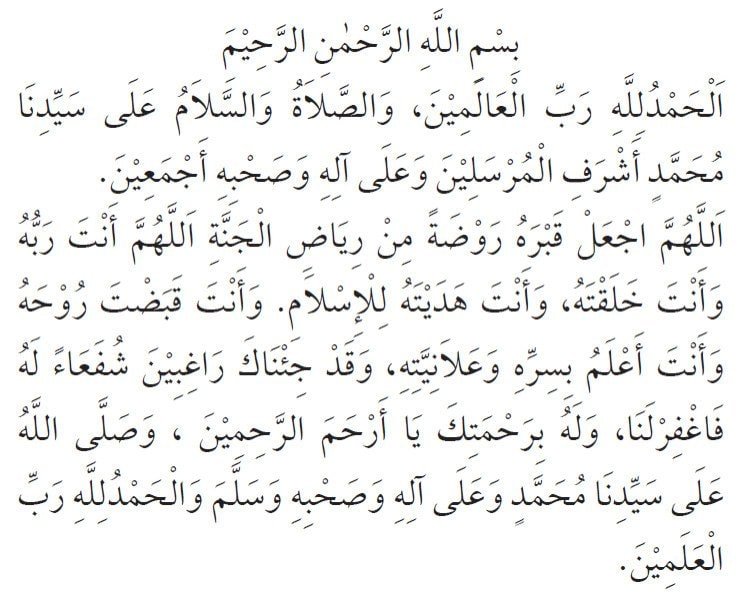 بِسْمِ اللَّهِ الرَّحْمٰنِ الرَّحِيْمَ
اَلْحَمْدُلِلَّهِ رَبِّ الْعَالَمِيْنَ، وَالصَّلَاَةُ وَالسَّلَاَمُ عَلَى سَيِّدِنَا
مُحَمَّدٍ أَشْرَفِ الْمُرْسَلِيْنَ وَعَلَى آلِهِ وَصَحْبِهِ أَجْمَعِيْنَ.
اَللَّهُمَّ اجْعَلْ قَبْرَهُ رَوْضَةً مِنْ رِيَاضِ الْجَنَّةِ اَللَّهُمَّ أَنْتَ رَبُّهُ
وَأَنْتَ خَلَقْتَهُ، وَأَنْتَ هَدَيْتَهُ لِلْإِسْلَاَمِ. وَأَنْتَ قَبَضْتَ رُوْحَهُ
وَأَنْتَ أَعْلَمُ بِسِرِّهِ وَعَلَاَنِيَّتِهِ، وَقَدْ جَئْنَاكَ رَاغِبِيْنَ شُفَعَاءً لَهُ
فَاغْفِرْلَنَا، وَلَهُ بِرَحْمَتِكَ يَا أَرْحَمَ الرَّحِمِيْنَ ، وَصَلَّى اللَّهُ
عَلَى سَيِّدِنَا مُحَمَّدٍ وَعَلَى آلِهِ وَصَحْبِهِ وَسَلَّمَ وَالْحَمْدُلِلَّهِ رَبِّ
الْعَلَمِيْنَ.